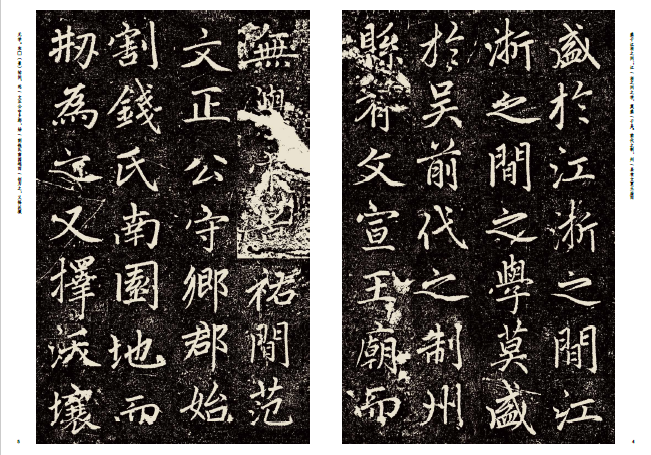 盛於江浙之間江
浙之間之學莫盛
於吳前代之制州
縣有文宣王廟而
4
無學宋祐間范
文正公守鄉郡始
割錢氏南園地而
刱為之又擇沃壤
5